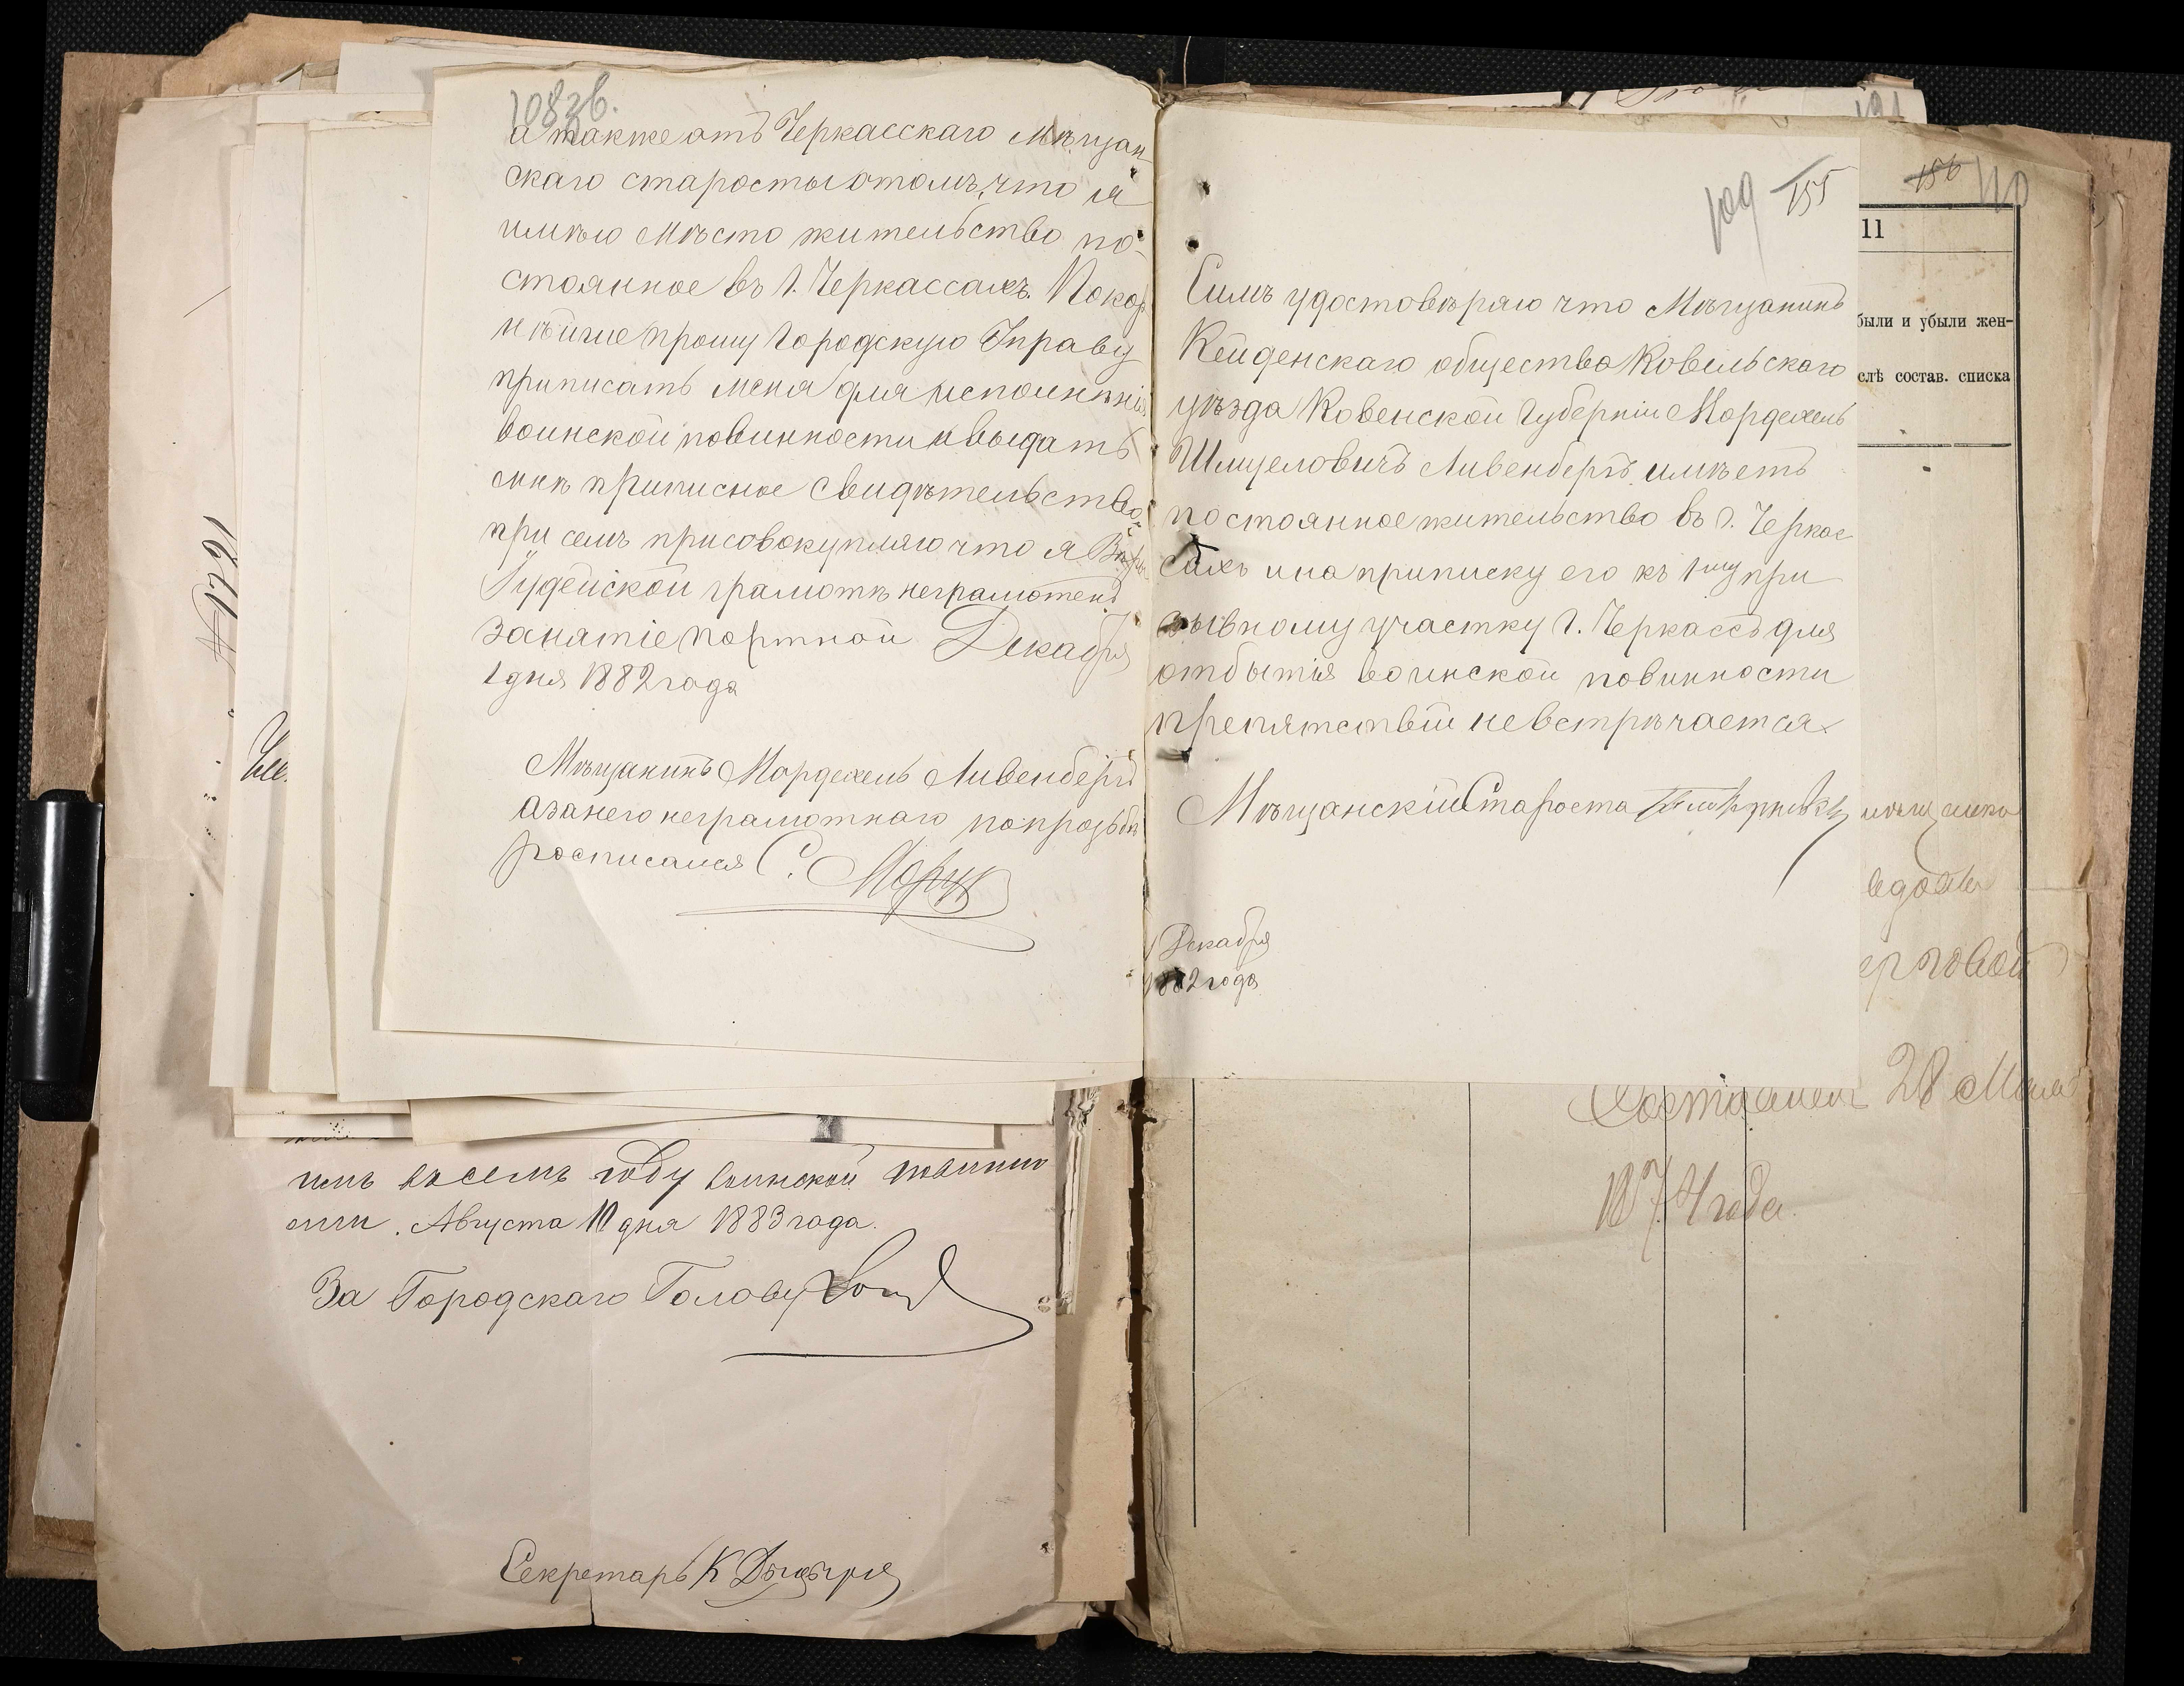 108 об.
а также отъ Черкасскаго Мѣщан
скаго старосты о томъ, что я
имѣю мѣсто жительство по-
стоянное въ г. Черкассахъ. Покор
нѣйше прошу Городскую Управу
приписать меня для исполненія
воинской повинности и выдать
мнѣ приписное свидѣтельство
при семъ присовокупляю что я
Іудейской грамотѣ неграмотенъ
занятіе портной Декабря
1 дня 1882 года
Мѣщанинъ Мордехель Ливенбергъ
а за него неграмотнаго по прозьбѣ
росписался С.
№ 1721
имъ въ семъ году воинской повинно
сти. Августа 10 дня 1883 года.
За Городскаго Голову
Секретарь К
109 155
Симъ удостовѣряю что Мѣщанинъ
Кейденскаго общества Ковельскаго
уѣзда Ковенской Губерніи Мордехель
Шмуеловичъ Ливенбергъ имѣетъ
постоянное жительство въ г. Черкас
сахъ и на приписку его къ 1му при
зывному участку г. Черкассъ для
отбытія воинской повинности
препятствій не встрѣчается.
Мѣщанскій Староста
1 Декабря
1882 года
156 110
11
были и убыли жен-
слѣ состав. списка
ерговой
Составлен 28 Мая
1874 года.